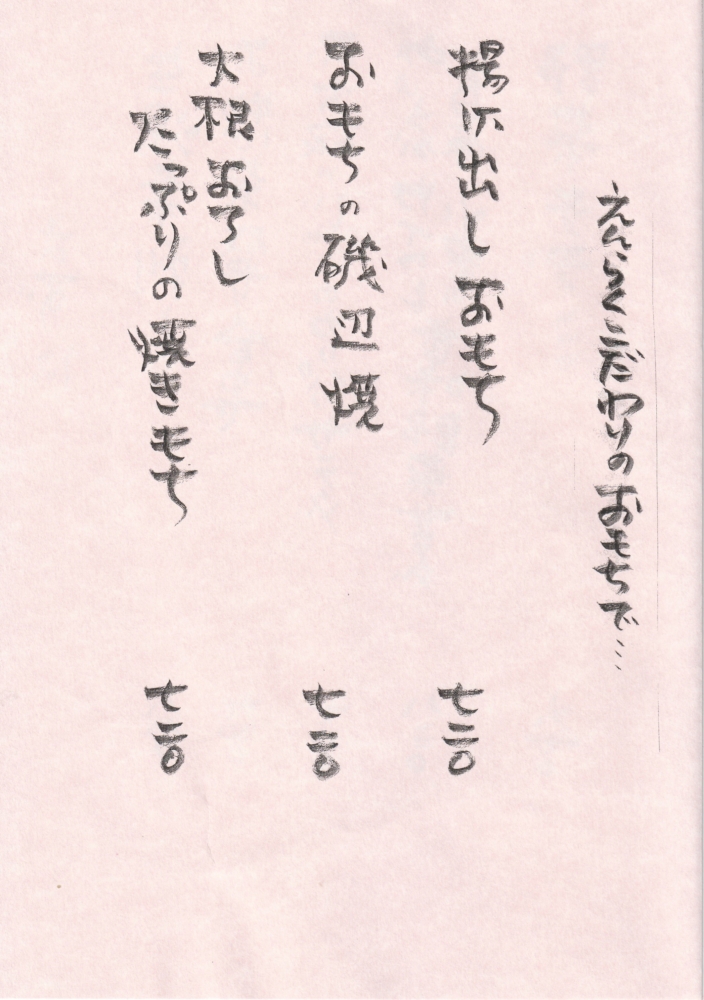 えんらくこだわりのおもちで…
揚げ出しおもち 七二〇
おもちの磯辺焼 七二〇
大根おろし
たっぷりの焼きもち 七二〇